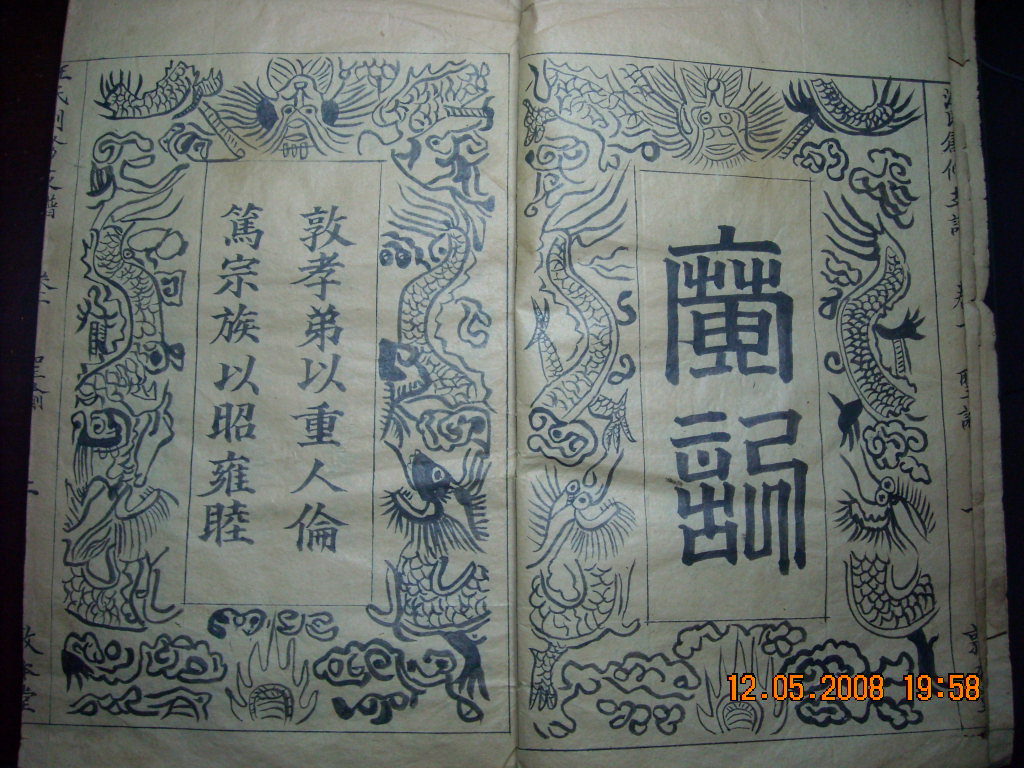 廣訓
敦孝弟以重人倫
篤宗族以昭雍睦
支譜 卷一 聖諭 二
12.05.2008 19:58